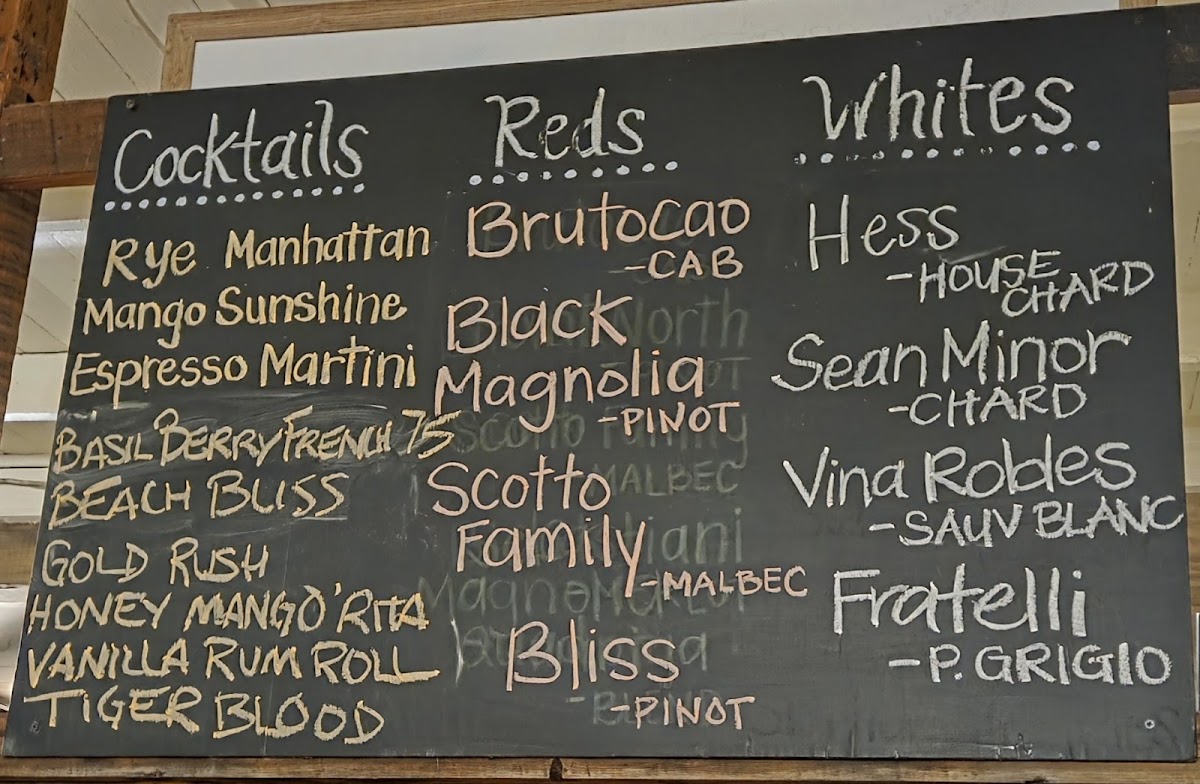 Cocktails
Rye Manhattan
Mango Sunshine
Espresso Martini
BASIL BERRY FRENCH 75
BEACH BLISS
GOLD RUSH
HONEY MANGO'RITA
VANILLA RUM ROLL
TIGER BLOOD
Reds
Brutocao
-CAB
Black
Magnolia
-PINOT
Scotto
Family
-MALBEC
Bliss
-PINOT
Whites
Hess
-HOUSE
CHARD
Sean Minor
-CHARD
Vina Robles
-SAUV BLANC
Fratelli
-P. GRIGIO